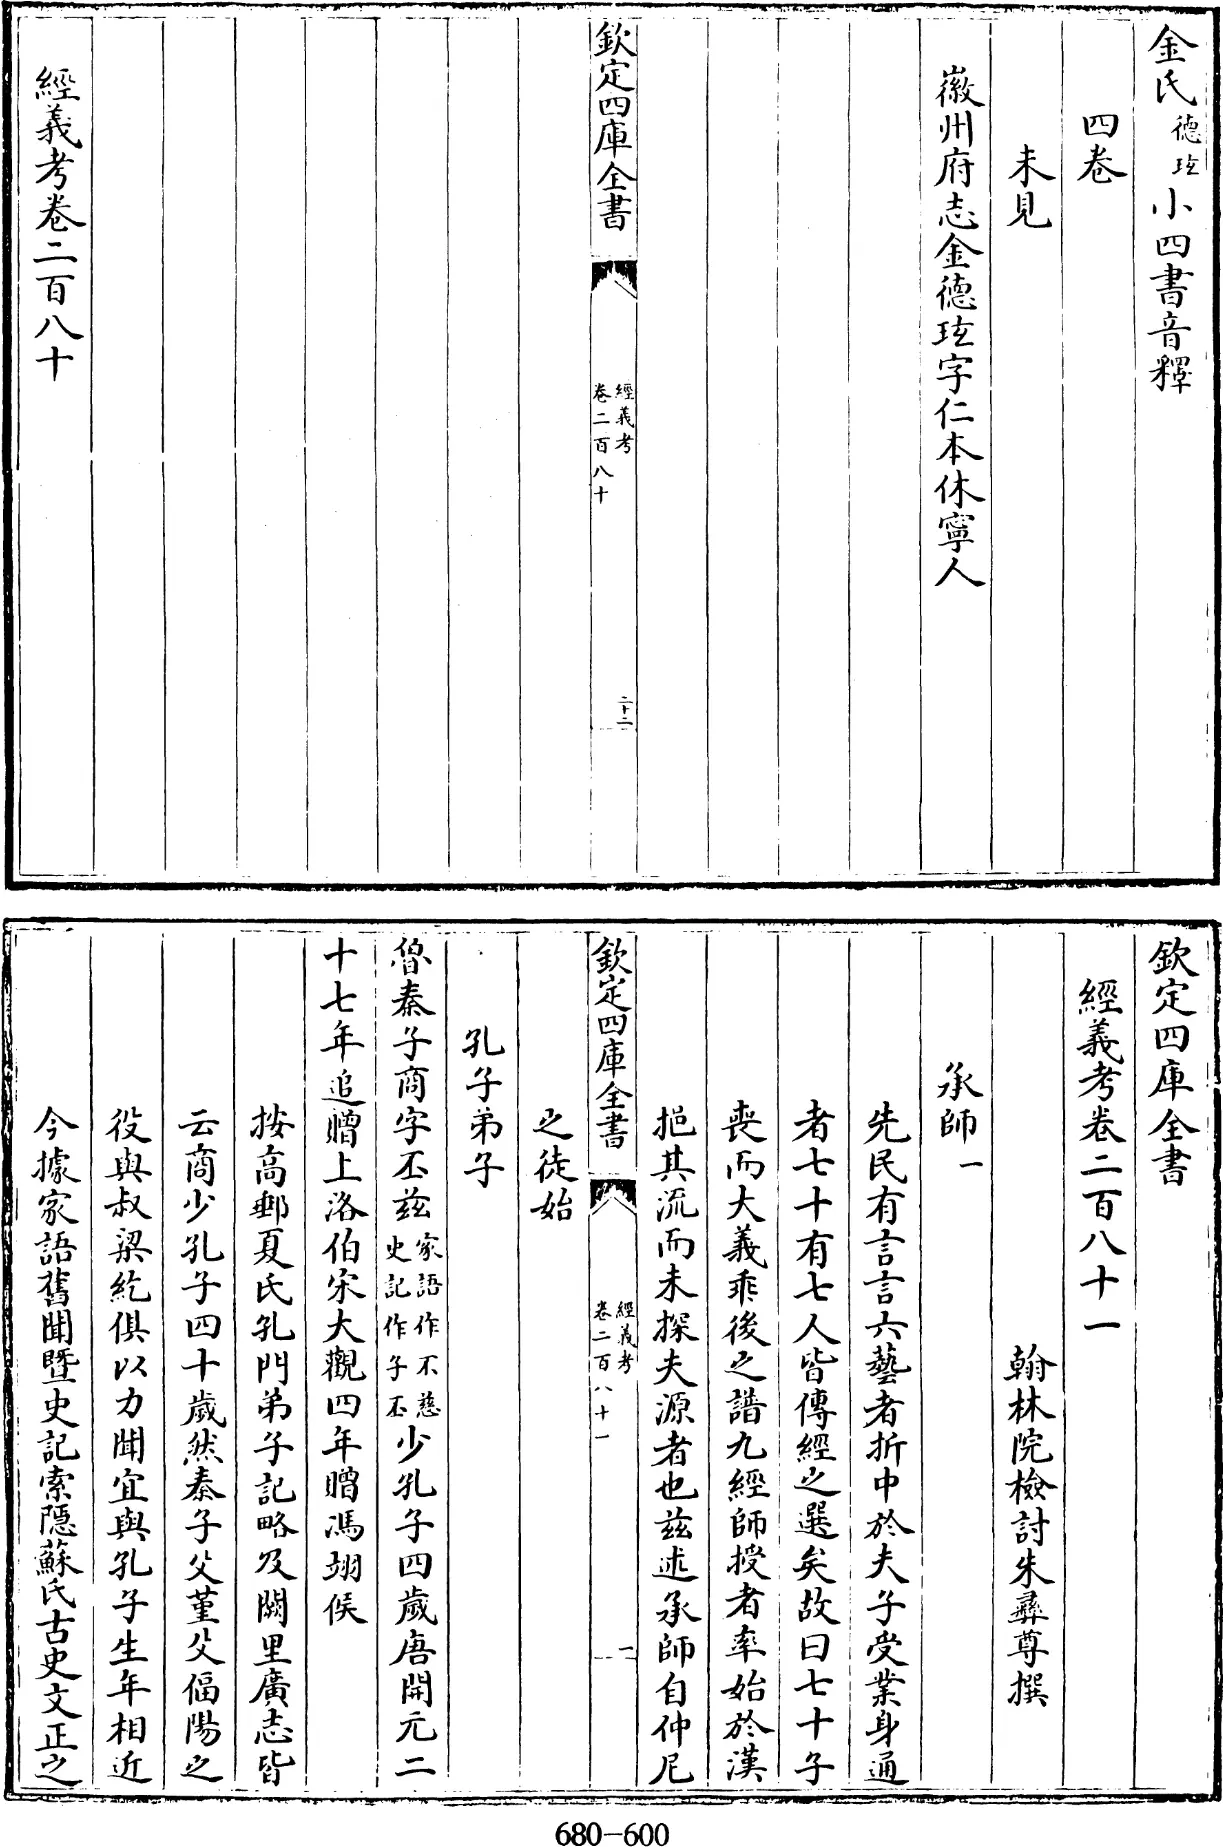 金氏德玹小四書音釋
四卷
未見
徽州府志金德玹字仁本休寧人
欽定四庫全書
經義考
卷二百八十
二十二
經義考卷二百八十
欽定四庫全書
經義考卷二百八十一
翰林院檢討朱彝尊撰
承師一
先民有言言六藝者折中於夫子受業身通
者七十有七人皆傳經之選矣故曰七十子
喪而大義乖後之譜九經師授者率始於漢
挹其流而未探夫源者也茲述承師自仲尼
欽定四庫全書
經義考
卷二百八十一
一
之徒始
孔子弟子
魯秦子商字丕茲家語作不慈史記作子丕少孔子四歲唐開元二
十七年追贈上洛伯宋大觀四年贈馮翊侯
按高郵夏氏孔門弟子記略及闕里廣志皆
云商少孔子四十歲然秦子父堇父偪陽之
役與叔梁紇俱以力聞宜與孔子生年相近
今據家語舊聞暨史記索隱蘇氏古史文正之
680-600